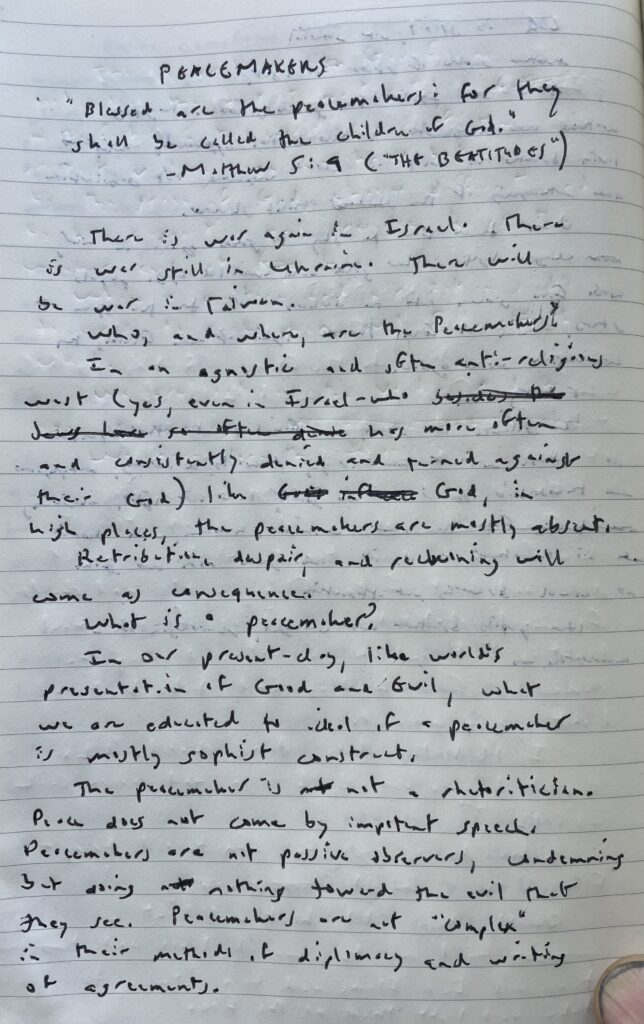 PEACEMAKERS
"Blessed are the peacemakers: for they
shall be called the children of God."
-Matthew 5:9 ("THE BEATITUDES")
There is war again in Israel. There
is war still in Ukraine. There will
be war in Taiwan.
Who, and where, are the Peacemakers?
In an agnostic and often anti-religious
west (yes, even in Israel-who besides the
so often has more often
and consistently denied and turned against
their God) like influence God, in
high places, the peacemakers are mostly absent.
Retribution, despair, and reckoning will
come as consequence.
What is a peacemaker?
In our present-day, like world's
presentation of Good and Evil, what
we are educated to ideal of a peacemaker
is mostly sophist construct.
The peacemaker is not not a rhetoritician.
Peace does not come by impotent speech.
Peacemakers are not passive observers, condemning
but doing not nothing toward the evil that
they see. Peacemakers are not "complex"
in their methods of diplomacy and writing
of agreements.